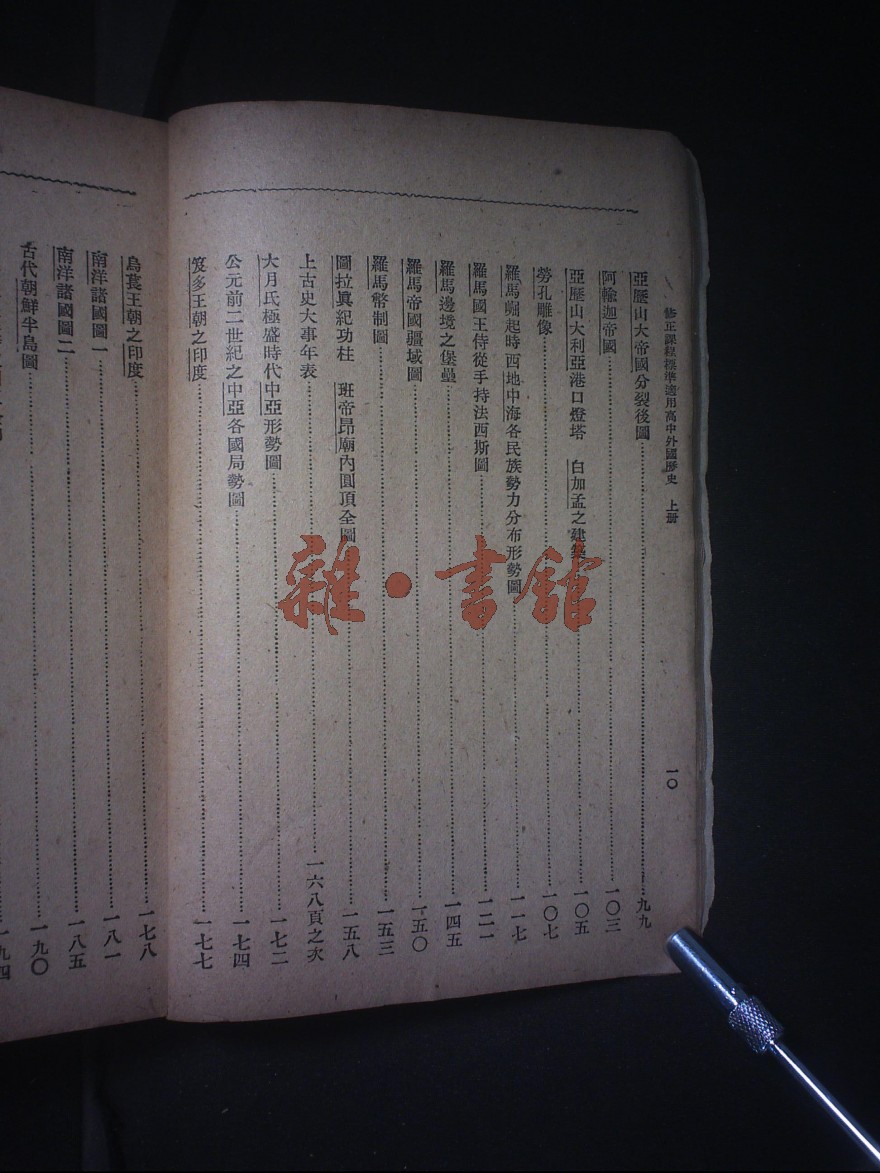 修正課程標準適用高中外國歷史　上册
一〇
亞歷山大帝國分裂後圖……九九
阿輸迦帝國……一〇三
亞歷山大利亞港口燈塔　白加孟之建築……一〇五
勞孔雕像……一〇七
羅馬崛起時西地中海各民族勢力分布形勢圖……一一七
羅馬國王侍從手持法西斯圖……一二一
羅馬邊境之堡壘……一四五
羅馬帝國疆域圖……一五〇
羅馬幣制圖……一五三
圖拉眞紀功柱　班帝昂廟內圓頂全圖……一五八
上古史大事年表……一六八頁之次
大月氏極盛時代中亞形勢圖……一七二
公元前二世紀之中亞各國局勢圖……一七四
笈多王朝之印度……一七七
烏萇王朝之印度……一七八
南洋諸國圖一……一八一
南洋諸國圖二……一八五
古代朝鮮半島圖……一九〇
一九四
雜·書館